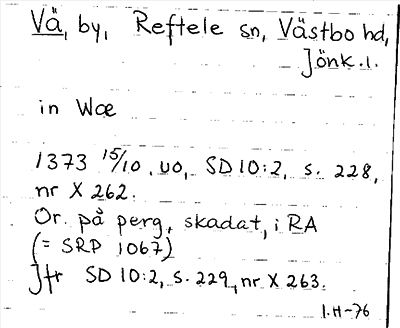 Vä, by, Reftele sn, Västbo hd,
Jönk.l.
in Wæ
1373 15/10, uo, SD 10:2, s. 228,
nr X 262.
Or. på perg, skadat, i RA
(= SRP 1067)
Jfr SD 10:2, s. 229, nr X 263.
I.H-76